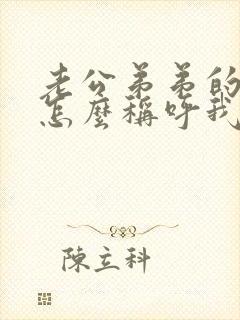 老公弟弟的
怎麼稱呼我
陳立科